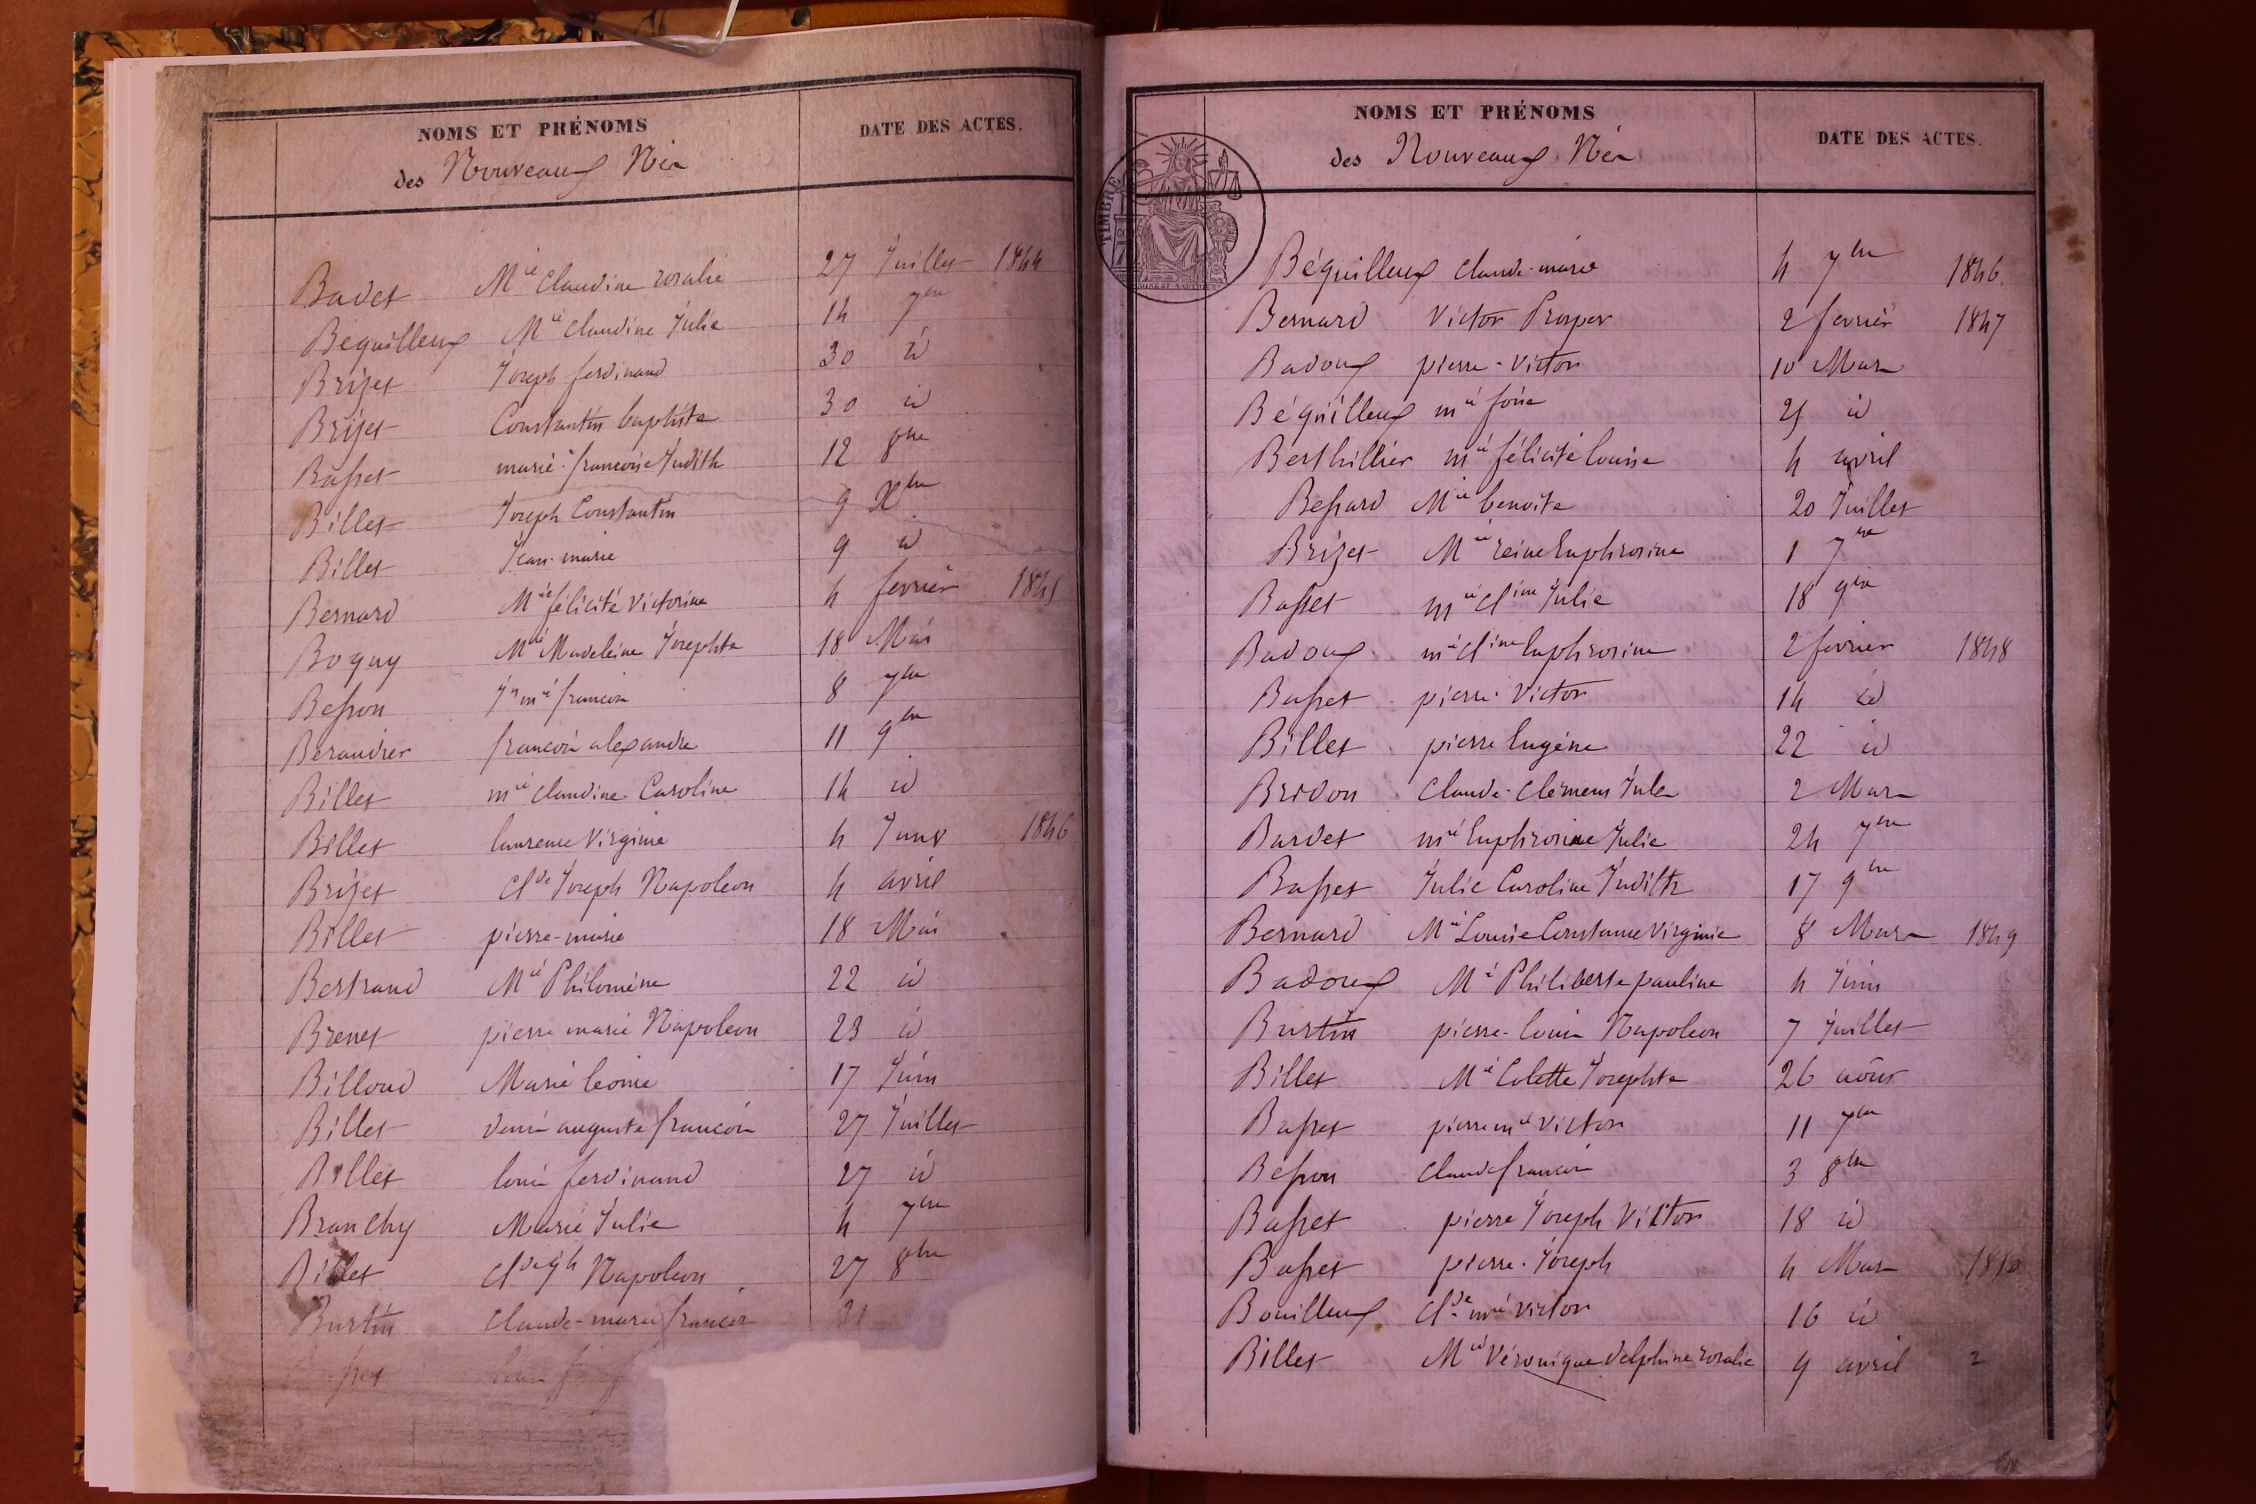 NOMS ET PRÉNOMS DATE DES ACTES.
des Nouveaux Nés
Badet Mie Claudine rosalie 27 Juillet 1844
Béquilleux Mie Claudine Julie 14 7bre
Brizet Joseph ferdinand 30 id
Brizet Constantin baptiste 30 id
Basset marie-francoise Judith 12 8bre
Billet Joseph Constantin 9 Xbre
Billet Jean-marie 9 id
Bernard Mie félicité Victorine 4 fevrier 1845
Boguy Mie Madeleine Josephte 18 Mai
Besson Jn mie francois 8 7bre
Beraudier francois alexandre 11 9bre
Billet mie claudine Caroline 14 id
Billet laurence Virginie 4 Janv 1846
Brizet Clde Joseph Napoleon 4 avril
Billet pierre-marie 18 Mai
Bertrand Mie Philomène 22 id
Brenet pierre marie Napoleon 23 id
Billoud Marie leonie 17 Juin
Billet denis auguste francois 27 Juillet
Billet louis ferdinand 27 id
Branchy Marie Julie 4 7bre
Billet Clde Jph Napoleon 27 8bre
Burtin Claude-marie francois 31
NOMS ET PRÉNOMS DATE DES ACTES.
des Nouveaux Nés
TIMBRE
Béquilleux Claude-marie 4 7bre 1846
Bernard Victor Prosper 2 fevrier 1847
Badoux pierre-Victor 10 Mars
Béquilleux mie 25 id
Berthillier mie félicité louise 4 avril
Bessard Mie benoite 20 Juillet
Brizet Mie reine Euphrosine 1 7bre
Basset mie Cline Julie 18 9bre
Badoux mie Cline Euphrosine 2 fevrier 1848
Basset pierre-Victor 14 id
Billet pierre Eugène 22 id
Bridon Claude-Clémens Jules 2 Mars
Bardet mie Euphrosine Julie 24 7bre
Basset Julie Caroline Judith 17 9bre
Bernard Mie Louise Constance Virginie 8 Mars 1849
Badoux Mie Philiberte pauline 4 Juin
Burtin pierre-louis Napoleon 7 Juillet
Billet Mie Colette Josephte 26 août
Basset pierre mie Victor 11 7bre
Besson Claude francois 3 8bre
Basset pierre Joseph Victor 18 id
Basset pierre-Joseph 4 Mars 1850
Bouilleux Clde mie Victor 16 id
Billet Mie Véronique delphine rosalie 9 avril 2